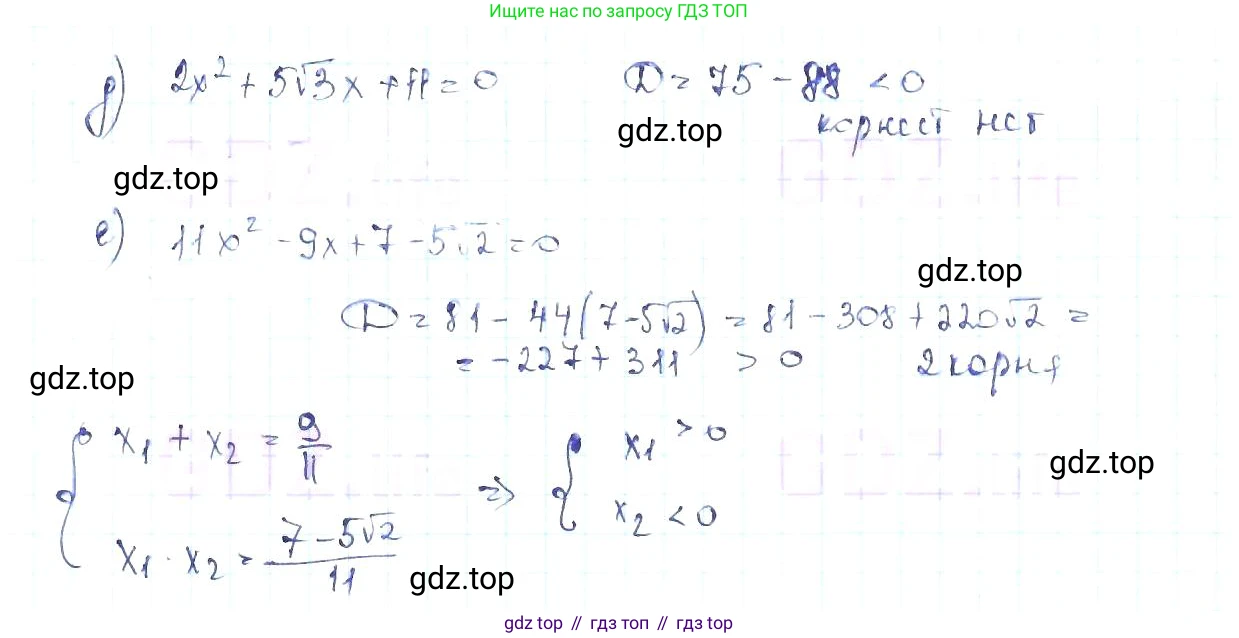 Ищите нас по запросу ГДЗ ТОП
д) 2x² + 5√3x + 11 = 0 D = 75 - 88 < 0
gdz.top
корней нет
gdz.top
е) 11x² - 9x + 7 - 5√2 = 0
gdz.top
D = 81 - 44(7-5√2) = 81 - 308 + 220√2 =
= -227 + 311 > 0 2 корня
gdz.top
x₁ + x₂ = 9/11 x₁ > 0
gdz.top
⇒
x₁ · x₂ = (7-5√2)/11 x₂ < 0
gdz.top
gdz top // гдз топ // гдз top